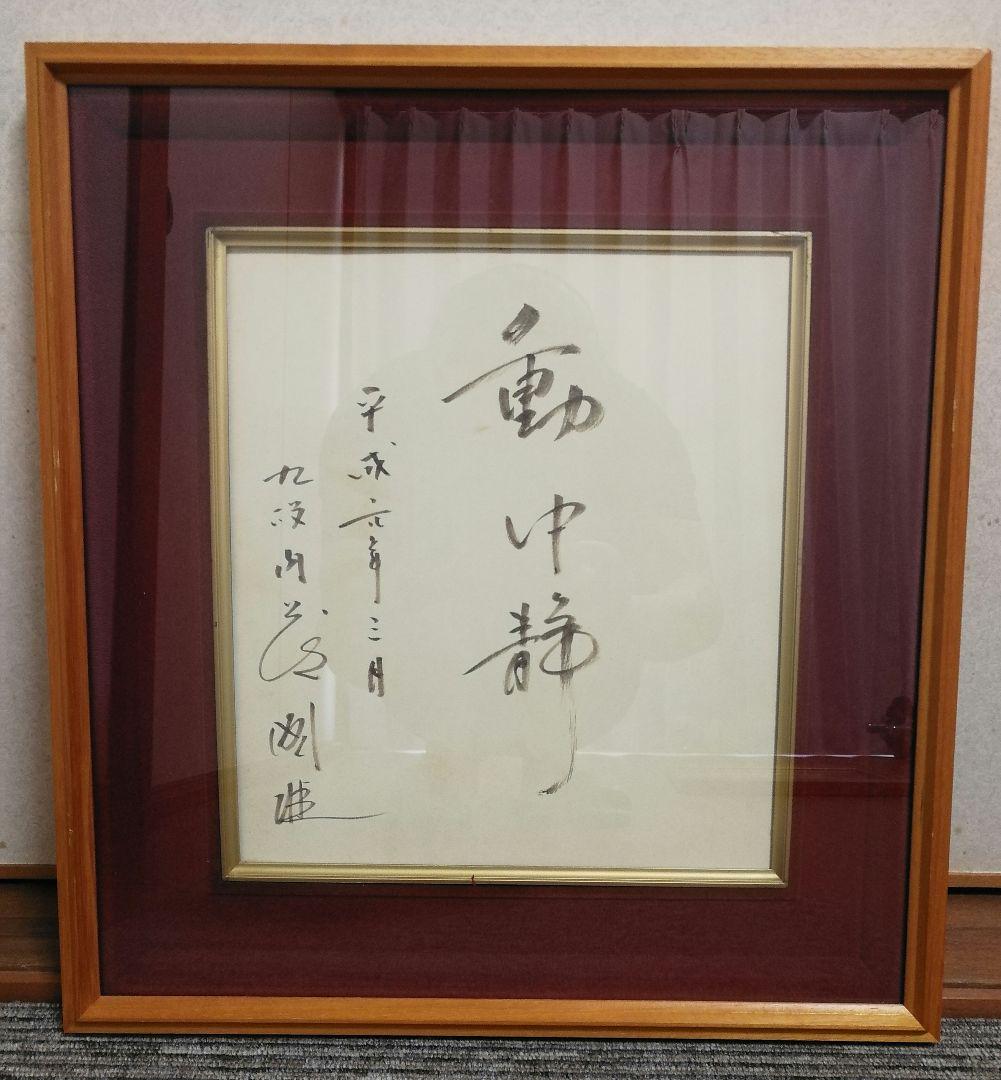 動中静
平成六年三月
九段内藤國雄